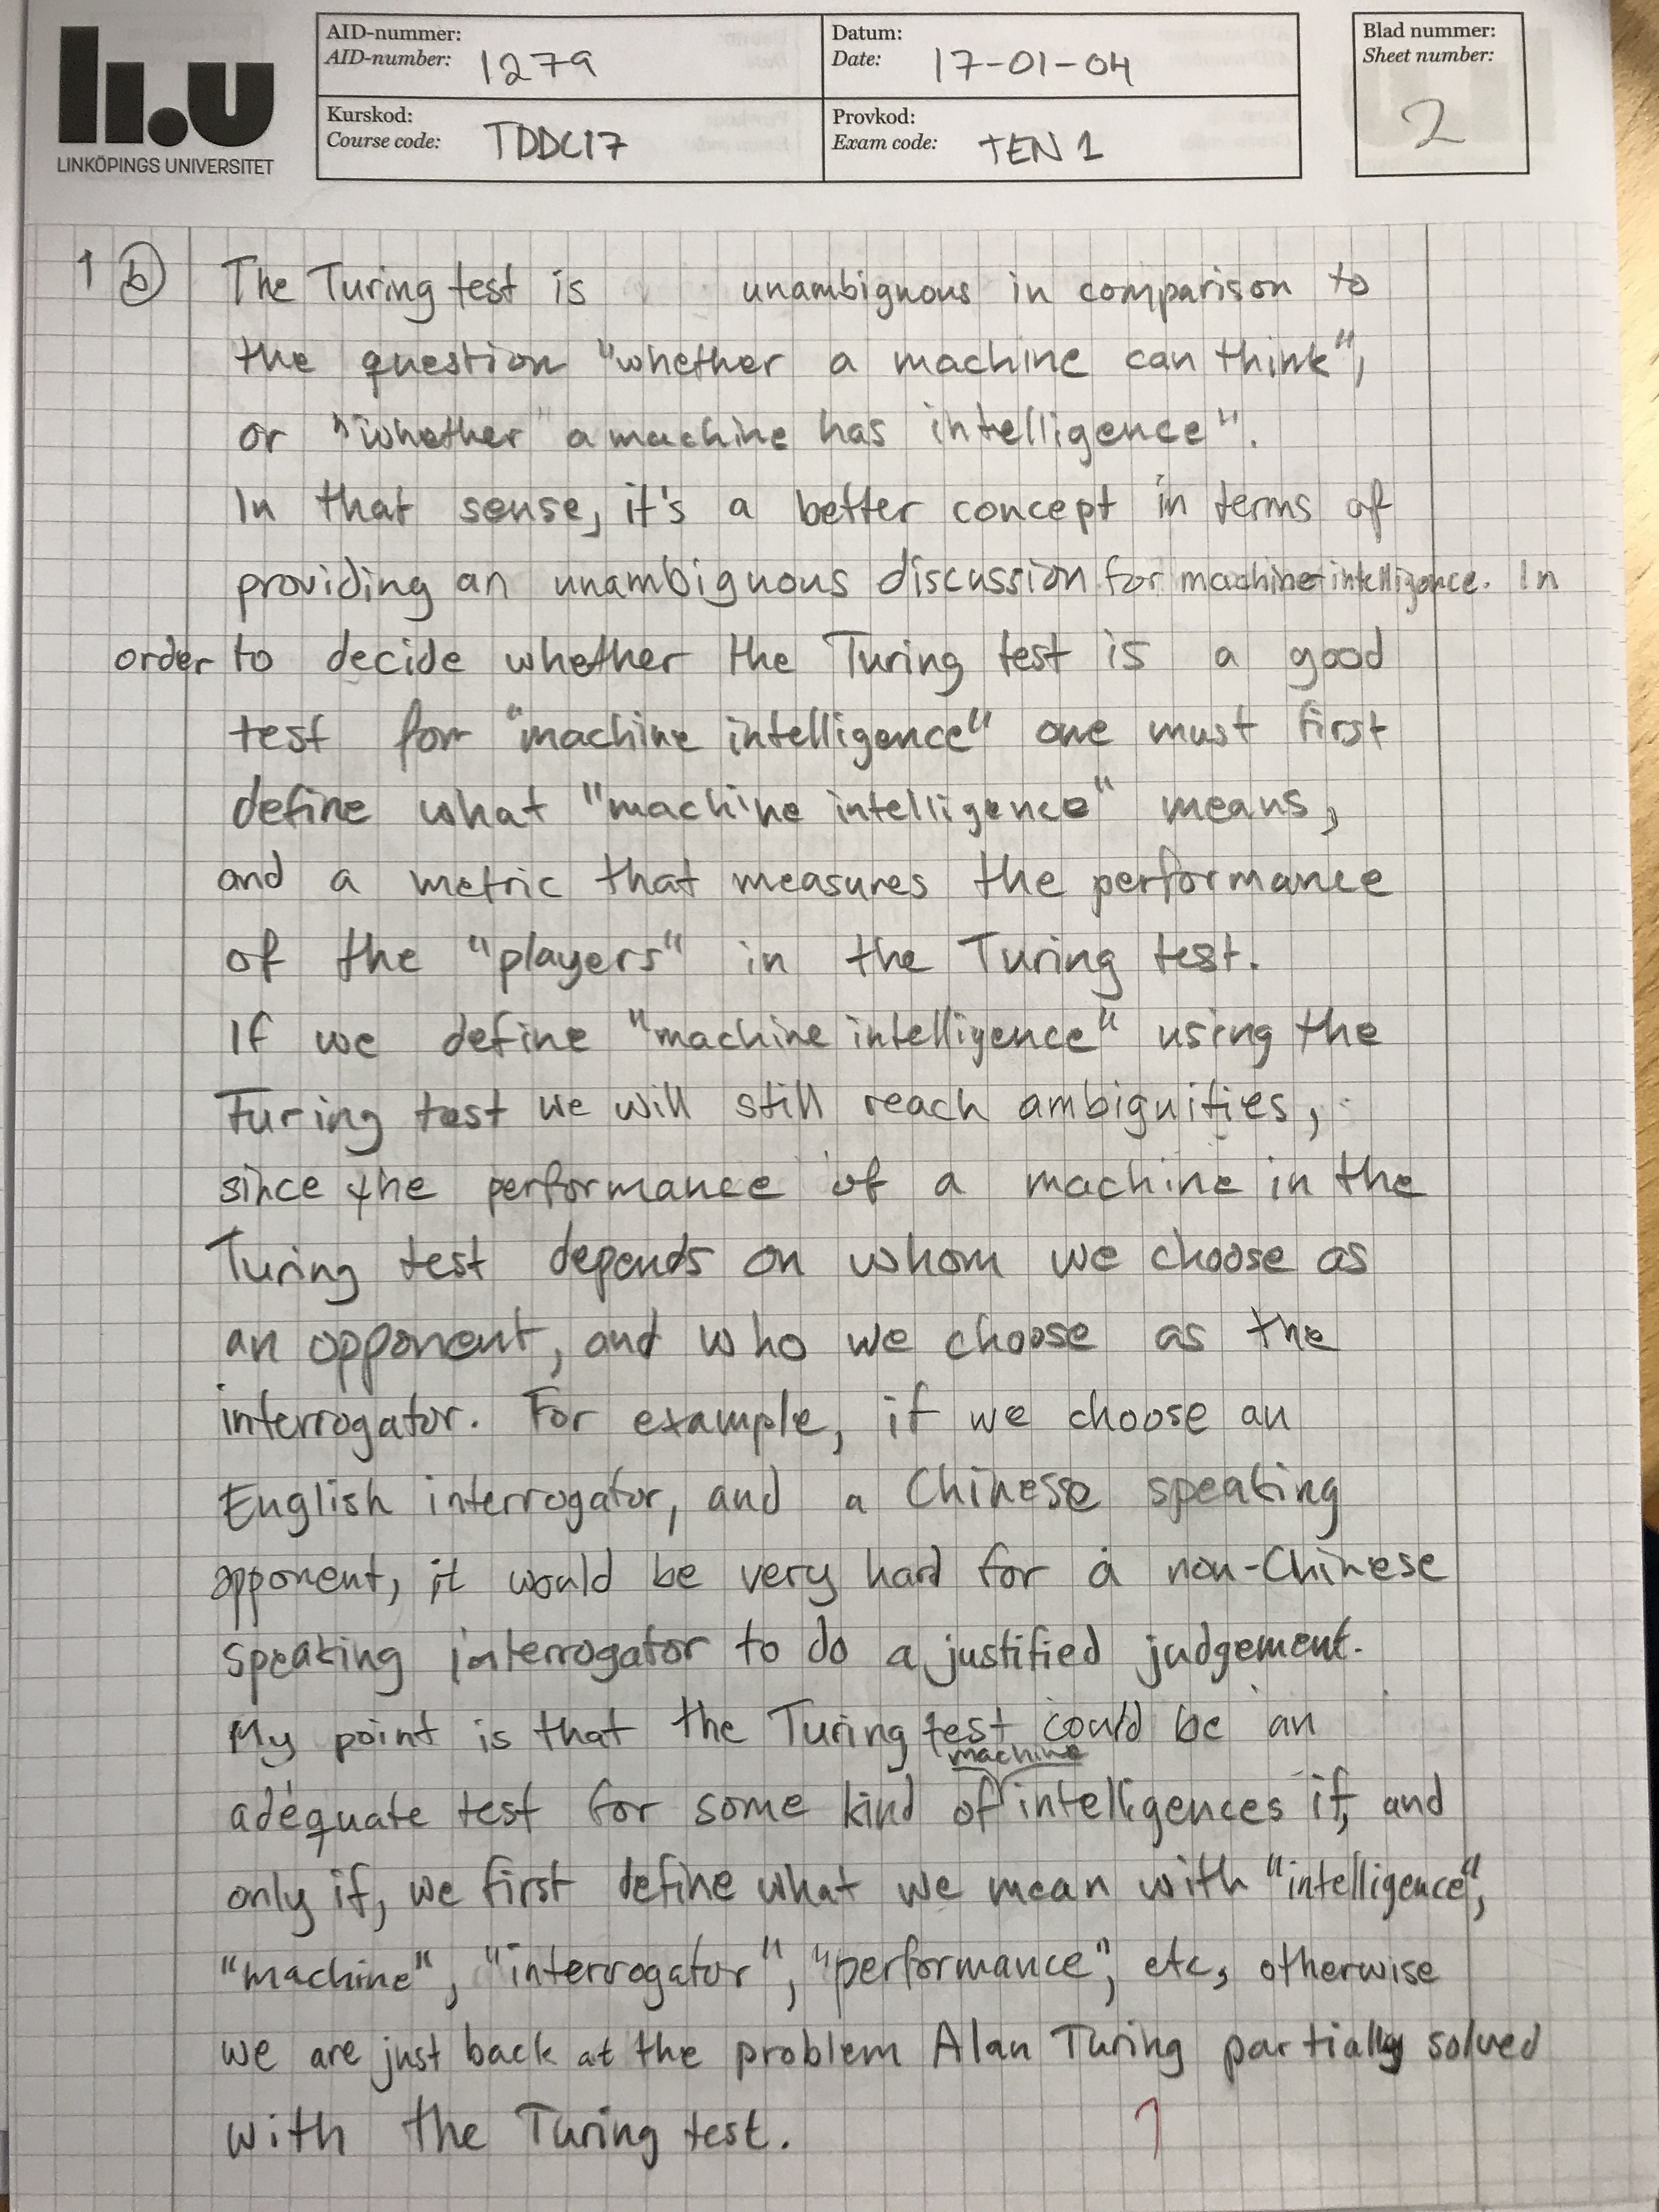 li.u
LINKÖPINGS UNIVERSITET
AID-nummer:
AID-number: 1279
Datum:
Date: 17-01-04
Kurskod:
Course code: TDDC17
Provkod:
Exam code: TEN 1
Blad nummer:
Sheet number:
2
1 b The Turing test is unambiguous in comparison to
the question "whether a machine can think",
or "whether" a machine has intelligence".
In that sense, it's a better concept in terms of
providing an unambiguous discussion for machine intelligence. In
order to decide whether the Turing test is a good
test for "machine intelligence" one must first
define what "machine intelligence" means,
and a metric that measures the performance
of the "players" in the Turing test.
If we define "machine intelligence" using the
Turing test we will still reach ambiguities,
since the performance of a machine in the
Turing test depends on whom we choose as
an opponent, and who we choose as the
interrogator. For example, if we choose an
English interrogator, and a Chinese speaking
opponent, it would be very hard for a non-Chinese
speaking interrogator to do a justified judgement.
My point is that the Turing test could be an
adequate test for some kind of machine intelligences if, and
only if, we first define what we mean with "intelligence",
"machine", "interrogator", "performance", etc, otherwise
we are just back at the problem Alan Turing partially solved
with the Turing test. 1